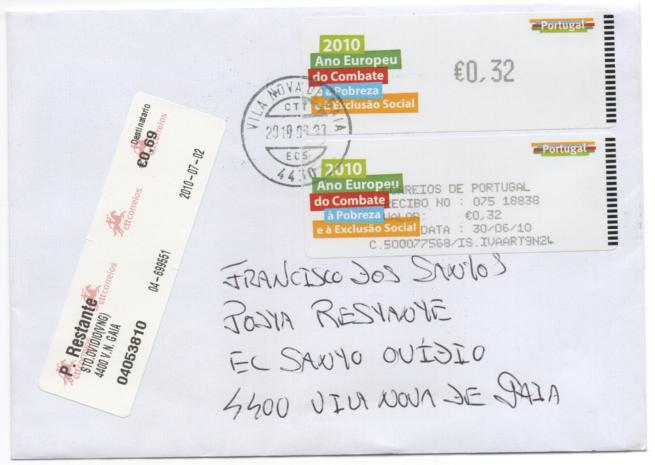 Portugal
2010
Ano Europeu
do Combate
à Pobreza
e à Exclusão Social
€0,32
VILA NOVA DE GAIA
CTT
ECS
4430
Portugal
2010
Ano Europeu
do Combate
à Pobreza
e à Exclusão Social
CORREIOS DE PORTUGAL
RECIBO NO : 075 18838
VALOR: €0,32
DATA : 30/06/10
C.500077568/IS.IVAART9N24
Destinatario
€0,69
2010-07-02
ctt correios
ctt correios
04-699551
P. Restante
STO.OVIDIO(VNG)
4400 V.N. GAIA
04053810
FRANCISCO DOS SANTOS
POSTA RESTANTE
EC SANTO OVÍDIO
4400 VILA NOVA DE GAIA